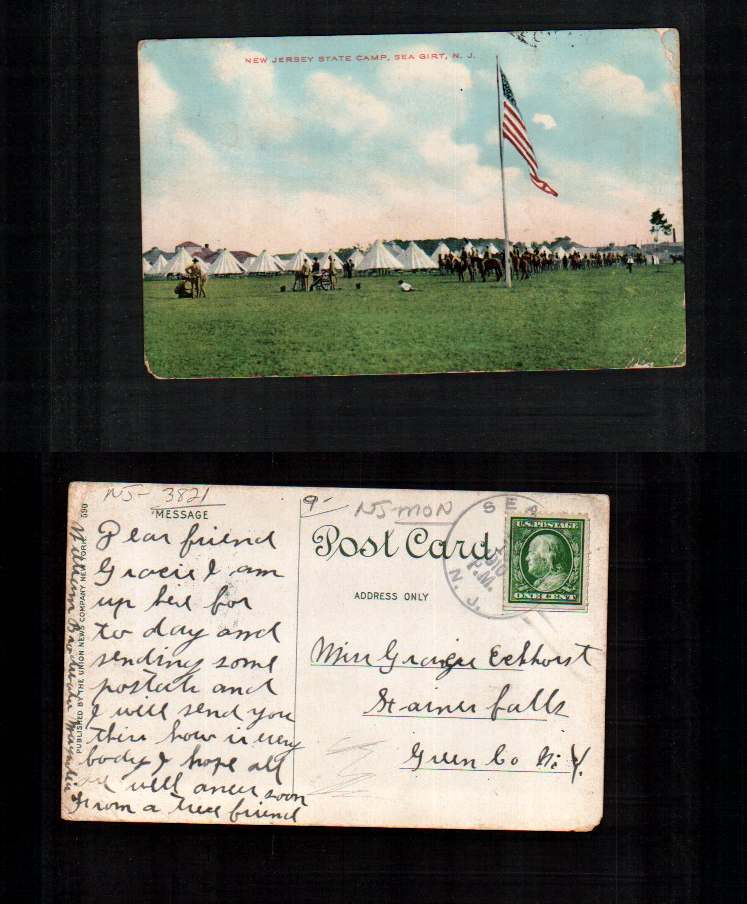 NEW JERSEY STATE CAMP, SEA GIRT, N. J.
NJ- 3821
MESSAGE
Dear friend
Gracie I am
up here for
to day and
sending some
postals and
I will send you
this how is every
body I hope all
are well answer soon
From a true friend
William
590
PUBLISHED BY THE UNION NEWS COMPANY NEW YORK.
9-
NJ-MON
Post Card
ADDRESS ONLY
SEA
1910
P.M.
N. J.
U.S. POSTAGE
ONE CENT
Miss Gracie Eckhorst
Hainer falls
Green Co N. Y.